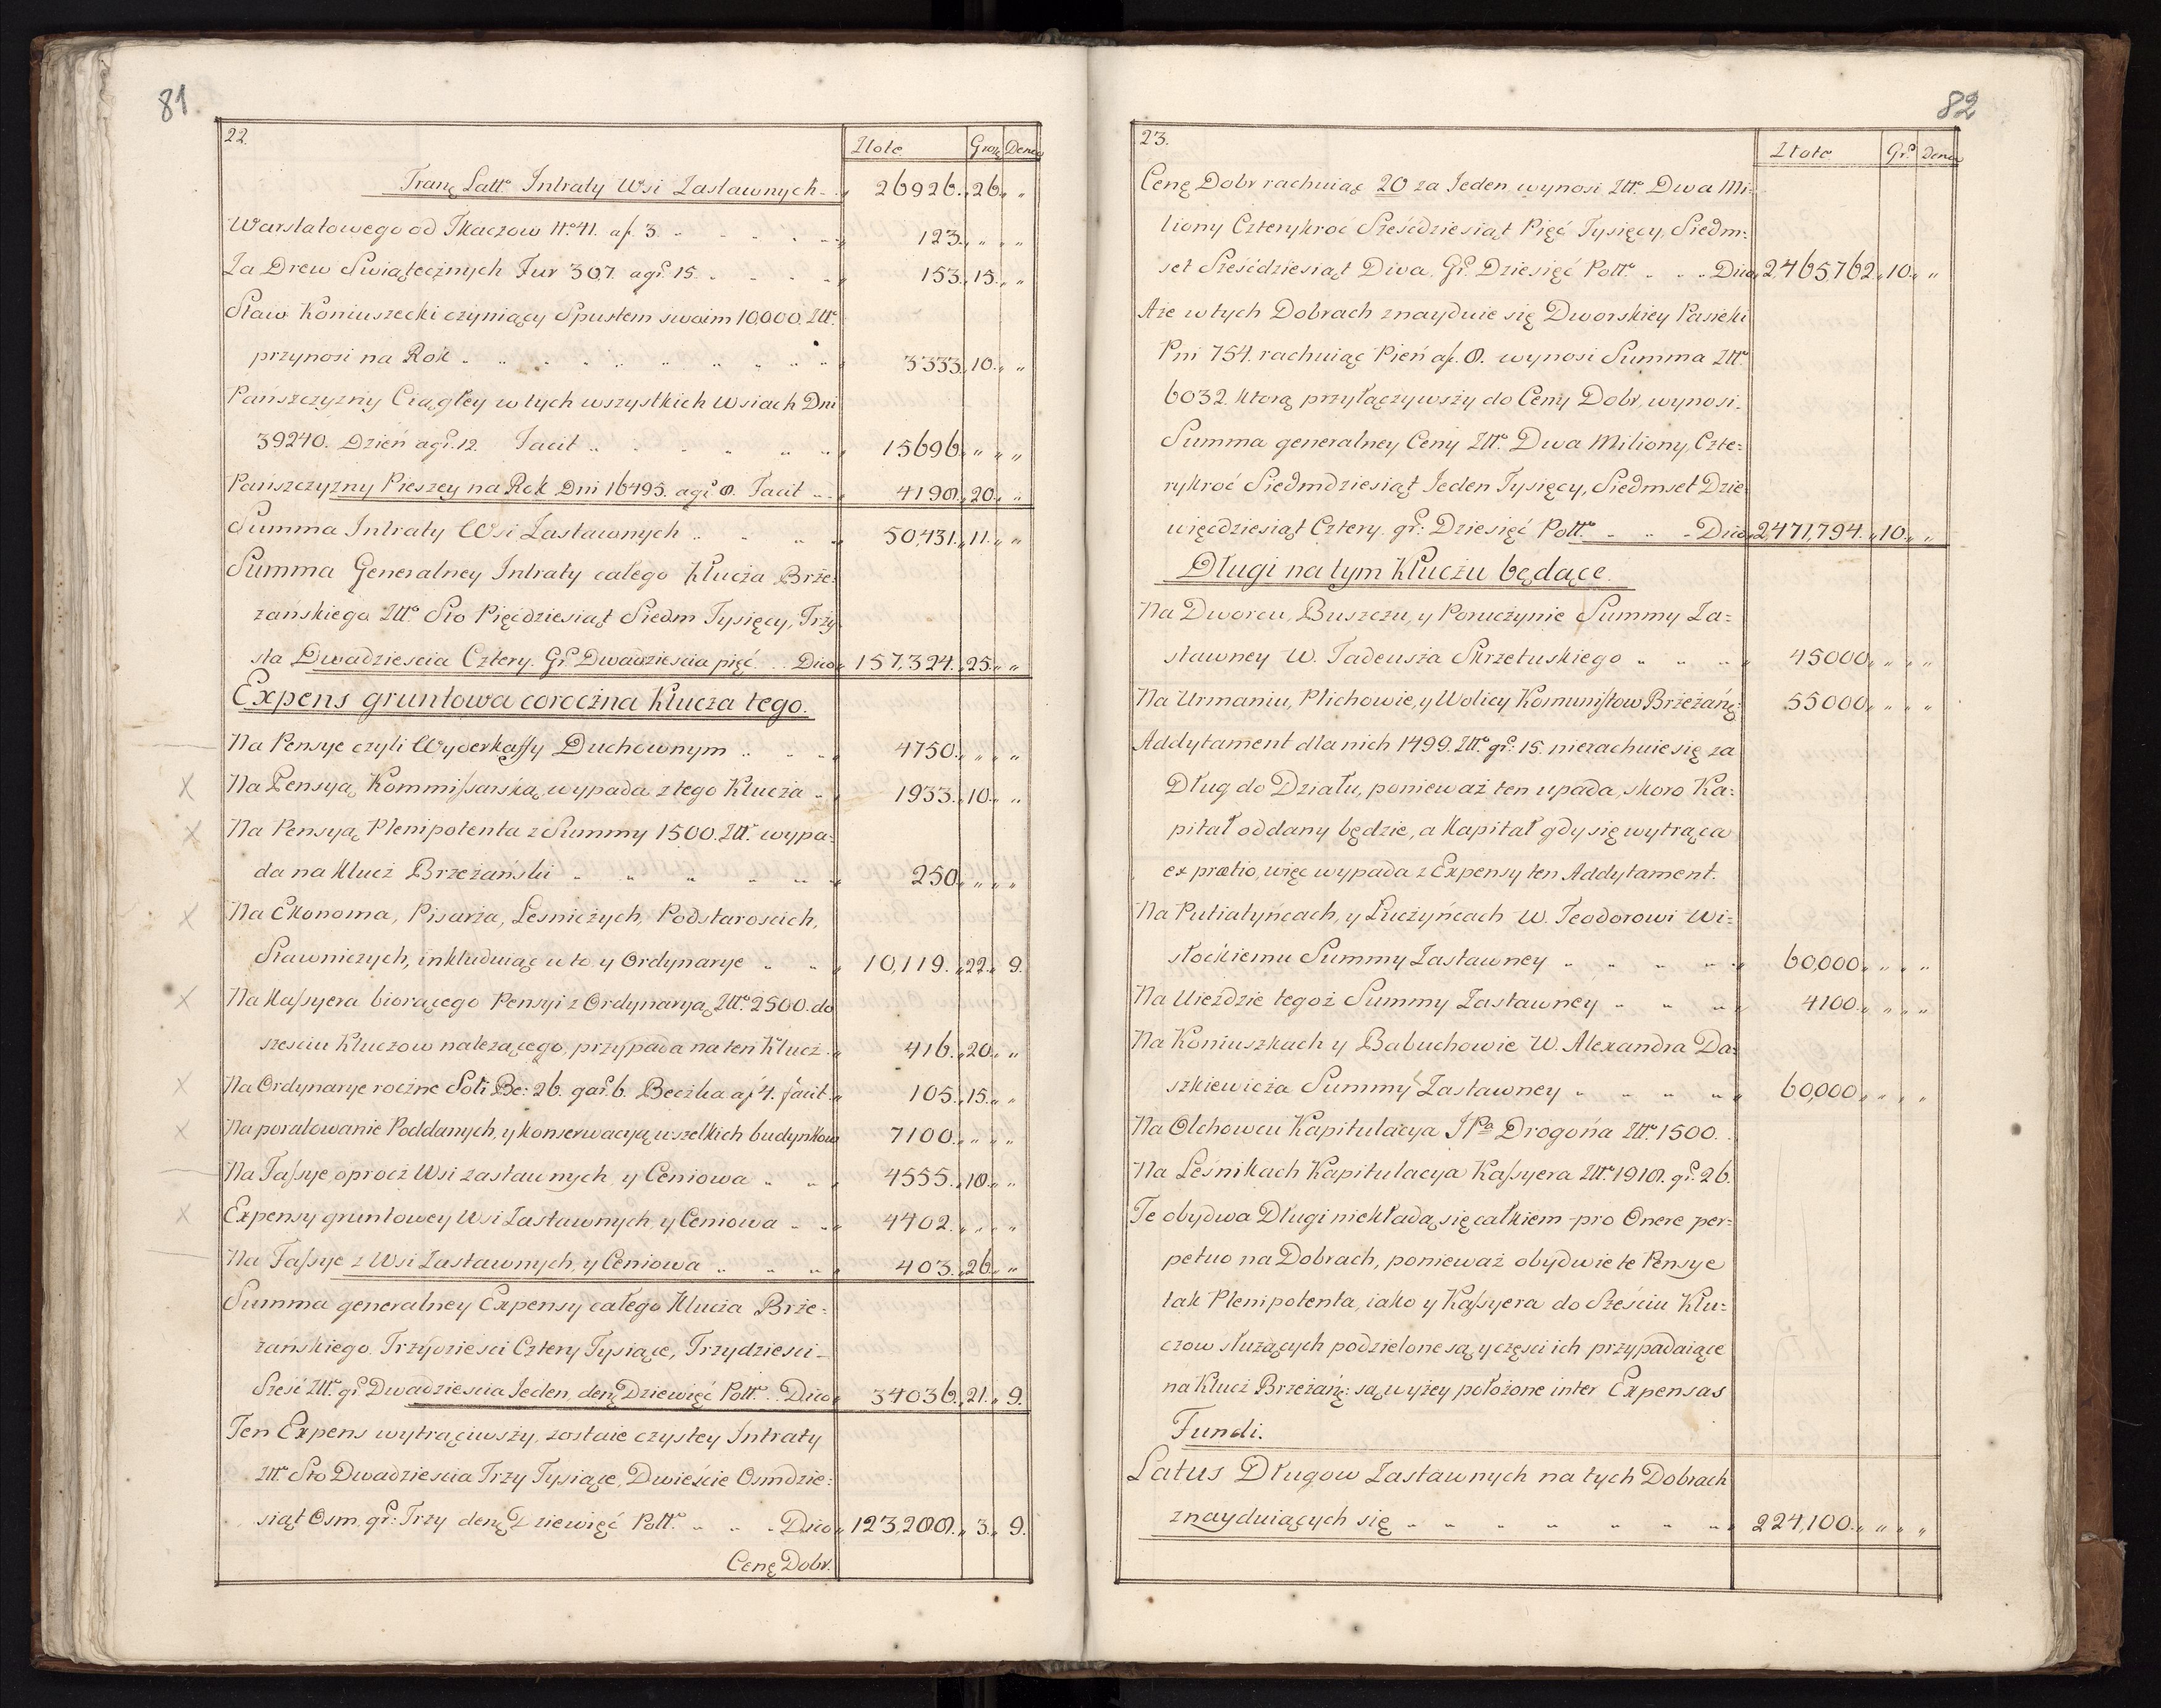 81
22.
Złote Grosz Denar
Tranę Latto Intraty Wsi Zastawnych 26926. 26. „
Warstatowego od Tkaczow No 41. af. 3. 123. „ „
Za Drew Swiątecznych Fur 307. a gr. 15. 153. 15. „
Staw Koniuszecki czyniący Spustem swoim 10,000. Złt.
przynosi na Rok 3333. 10. „
Pańszczyzny Ciągłey w tych wszystkich Wsiach Dni
39240. Dzień a gr. 12. Facit 15696. „ „
Pańszczyzny Pieszey na Rok Dni 16495. a gr. 8. Facit 4198. 20. „
Summa Intraty Wsi Zastawnych 50,431. 11. „
Summa Generalney Intraty całego Klucza Brze=
zańskiego Złto Sto Pięćdziesiąt Siedm Tysięcy, Trzy
sta Dwadziescia Cztery. Gr. Dwadziescia pięć. Dico 157,324. 25. „
Expens gruntowa coroczna Klucza tego.
Na Pensye czyli Wyderkaffy Duchownym 4750. „ „
Na Pensyą Kommissarską wypada z tego Klucza 1933. 10. „
Na Pensyą Plenipotenta z Summy 1500. Złt. wypa=
da na Klucz Brzezański 250. „ „
Na Ekonoma, Pisarza, Lesniczych, Podstaroscich,
Stawniczych, inkluduiąc w to y Ordynarye 10,119. 22. 9.
Na Kassyera biorącego Pensyi z Ordynaryą Złto. 2500. do
szesciu Kluczow nalezącego, przypada na ten Klucz 416. 20. „
Na Ordynarye roczne Soli Be: 26. gar. 6. Beczka af 4. facit 105. 15. „
Na poratowanie Poddanych, y konserwacyą wszelkich budynkow 7100. „ „
Na Fassye oprocz Wsi zastawnych, y Ceniowa 4555. 18. „
Expensy gruntowey Wsi Zastawnych, y Ceniowa 4402. „ „
Na Fassye z Wsi Zastawnych, y Ceniowa 403. 26. „
Summa generalney Expensy całego Klucza Brze=
zańskiego. Trzydziesci Cztery Tysiące, Trzydziesci
Szesć Złt. gr. Dwadziescia Jeden, denę Dziewięć Poltto. Dico 34036. 21. 9.
Ten Expens wytrąciwszy, zostaie czystey Intraty
Złto Sto Dwadziescia Trzy Tysiące, Dwieście Osmdzie=
siąt Osm, gr: Trzy denę Dziewięć Poltto. Dico 123,288. 3. 9.
Cenę Dobr.
82
23.
Złote Gr. Denar
Cenę Dobr rachuiąc 20 za Jeden, wynosi Złto. Dwa Mi=
liony Czterykroć Sześćdziesiąt Pięć Tysięcy, Siedm=
set Sześćdziesiąt Dwa, Gr. Dziesięć Poltto. Dico 2,465,762. 10. „
A ze w tych Dobrach znayduie się Dworskiey Pasieki
Pni 754. rachuiąc Pień af. 8. wynosi Summa Złto.
6032. ktorą przyłączywszy do Ceny Dobr, wynosi
Summa generalney Ceny Złto. Dwa Miliony, Czte=
rykroć Siedmdziesiąt Jeden Tysięcy, Siedmset Dzie=
więćdziesiąt Cztery. gr: Dziesięć Poltto. Dico 2,471,794. 10. „
Długi na tym Kluczu będące.
Na Dworcu, Buszczu, y Poruczynie Summy Za=
stawney W. Tadeusza Skrzetuskiego 45000. „ „
Na Urmaniu, Plichowie, y Wolicy Komunistow Brzeżańs: 55000. „ „
Addytament dla nich 1499. Złto. gr: 15. nierachuie się za
Dług do Działu, ponieważ ten upada, skoro Ka=
pitał oddany będzie, a Kapitał gdy się wytrąca
ex prætio, więc wypada z Expensy ten Addytament.
Na Putiatyńcach, y Łuczyńcach W. Teodorowi Wi=
słockiemu Summy Zastawney 60,000. „ „
Na Uieździe tegoż Summy Zastawney 4100. „ „
Na Koniuszkach y Babuchowie W. Alexandra Da=
szkiewicza Summy Zastawney 60,000. „ „
Na Olchowcu Kapitulacya JPa Drogońa Złt. 1500.
Na Leśnikach Kapitulacya Kassyera Złto. 1918. gr. 26.
Te obydwa Długi niekładą się całkiem pro Onere per=
petuo na Dobrach, ponieważ obydwie te Pensye
tak Plenipotenta, iako y Kassyera do Sześciu Klu=
czow służących podzielone są, y częsci ich przypadaiące
na Klucz Brzeżańs: są wyżey położone inter Expensas
Fundi.
Latus Długow Zastawnych na tych Dobrach
znayduiących się 224,100. „ „